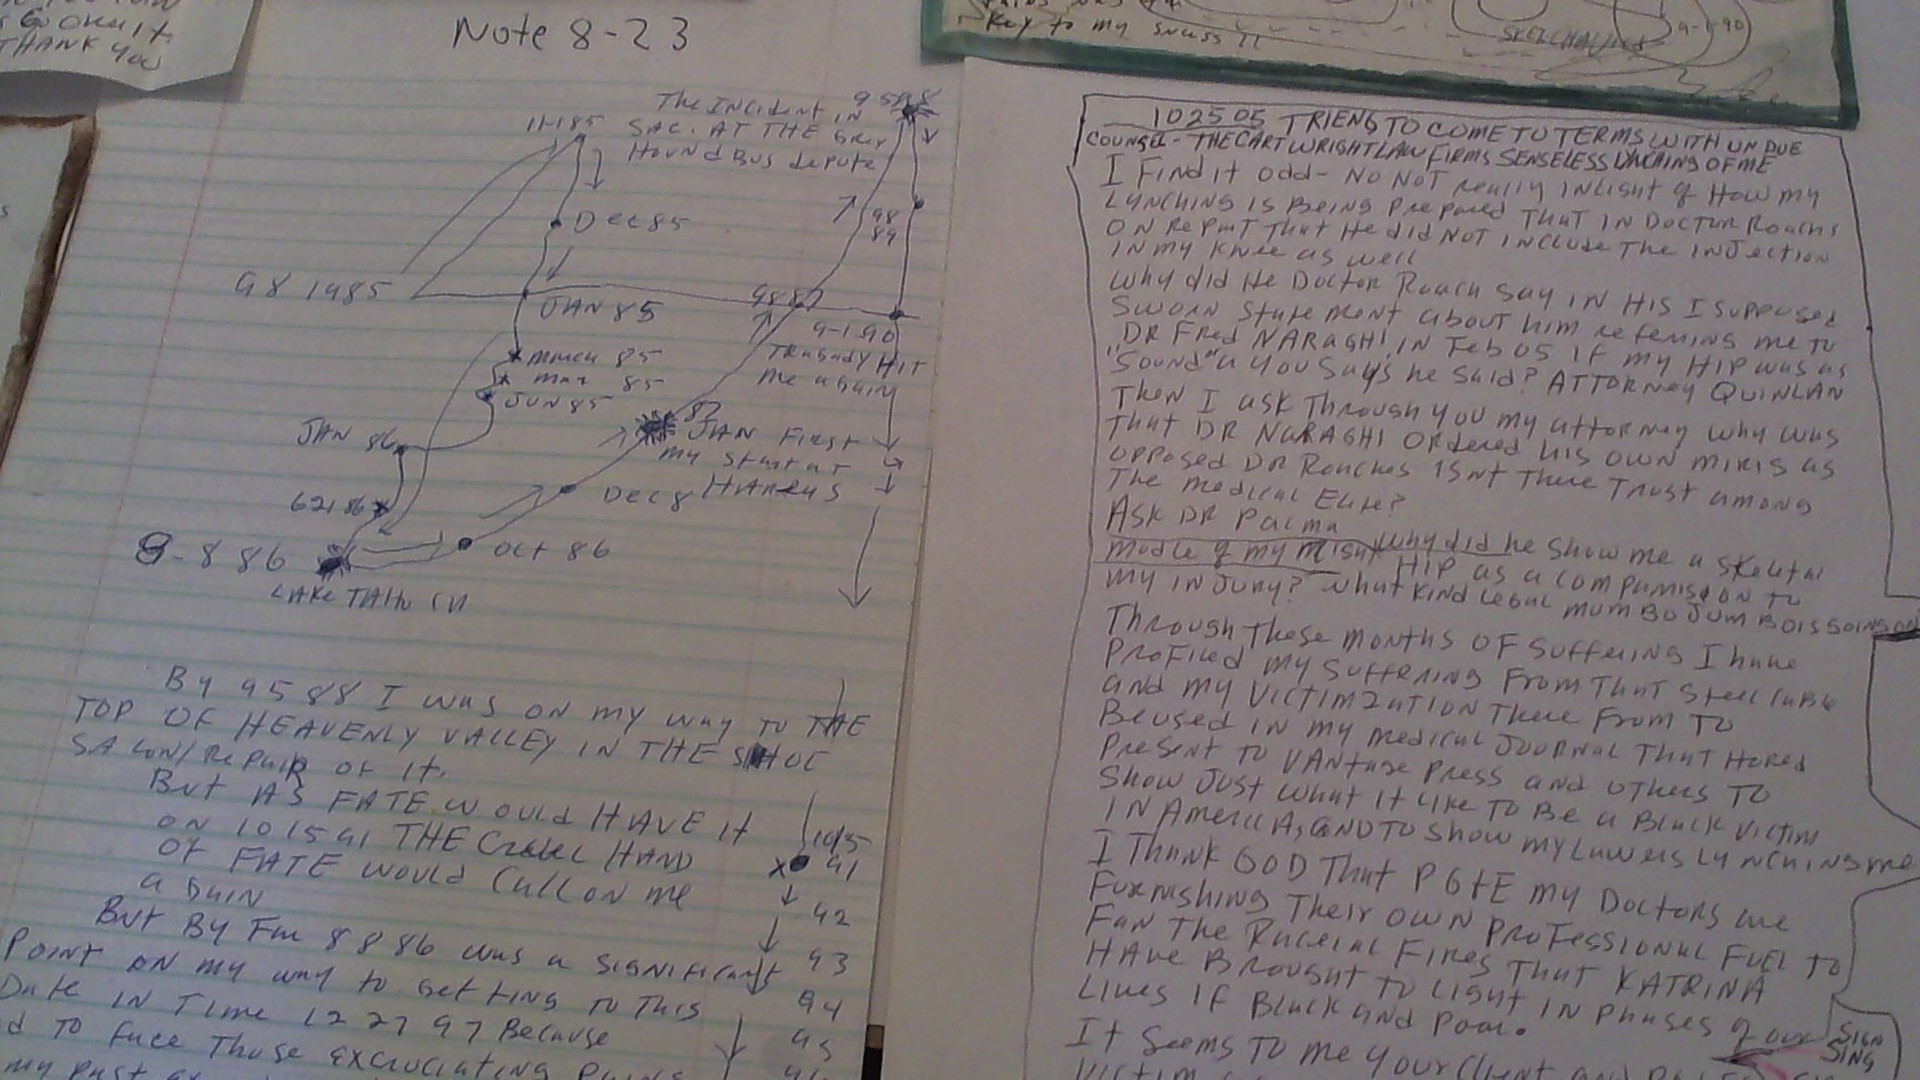 GOOK IT
THANK YOU
Note 8-23
The Incident in 9588
11-185 SAC. AT THE Grey
Hound Bus depute
Dec 85
98 1985
JAN 85
98 89
9887
9-1 90
TRagady HIT
me again
march 85
mar 85
JUN 85
JAN 86
87
JAN First
my start at
HARRAHS
62186
Dec 8
8-8 86
Oct 86
LAKE TAHO CA
By 9588 I was on my way to THE
TOP OF HEAVENLY VALLEY IN THE SHOE
SALON/REPAIR OF IT.
But AS FATE would HAVE it
ON 101591 THE Cruel HAND
OF FATE would Call on me
a gain
10/15
91
92
93
94
95
But By Far 8886 was a significant
Point on my way to getting to This
Date in Time 122797 Because
d to face Those excruciating Pains
my past
Key to my
9-1-90
102505 TRIENG TO COME TO TERMS WITH UN DUE
COUNSEL - THE CARTWRIGHT LAW FIRMS SENSELESS LYNCHING OF ME
I Find it odd - No Not really inlight of How my
Lynching is Being Prepared That in Doctor Roachs
on repart That He did Not include The injection
in my Knee as well
why did He Doctor Roach say in His I supposed
Sworn statement about him refering me to
DR Fred NARAGHI, in Feb 05 if my Hip was as
"Sound" as you say's he said? ATTORNEY QUINLAN
Then I ask Through you my attorney why was
That DR NARAGHI Ordered his own MIRIS as
opposed DR Roaches isnt There Trust among
The medical Elite?
Ask DR Palma
why did he show me a skeletal
modle of my HIP as a comparison to
my injury? what kind legal mumBo Jum Bo is going on
Through These months of suffering I have
Profiled my suffering From That steel cable
and my victimization There From To
Be used in my medical Journal That Hored
Present to VANtage Press and others to
Show Just what it like to Be a Black victim
in America, and to show my Lawers Lynching me
I Thank GOD That PG&E my Doctors are
Furnishing Their own Professional Fuel to
Fan The Raceial Fires That KATRINA
Have Brought to Light in Phases of our
Lives if Black and Poor.
It seems to me your Client and
SIGN
SING
victim